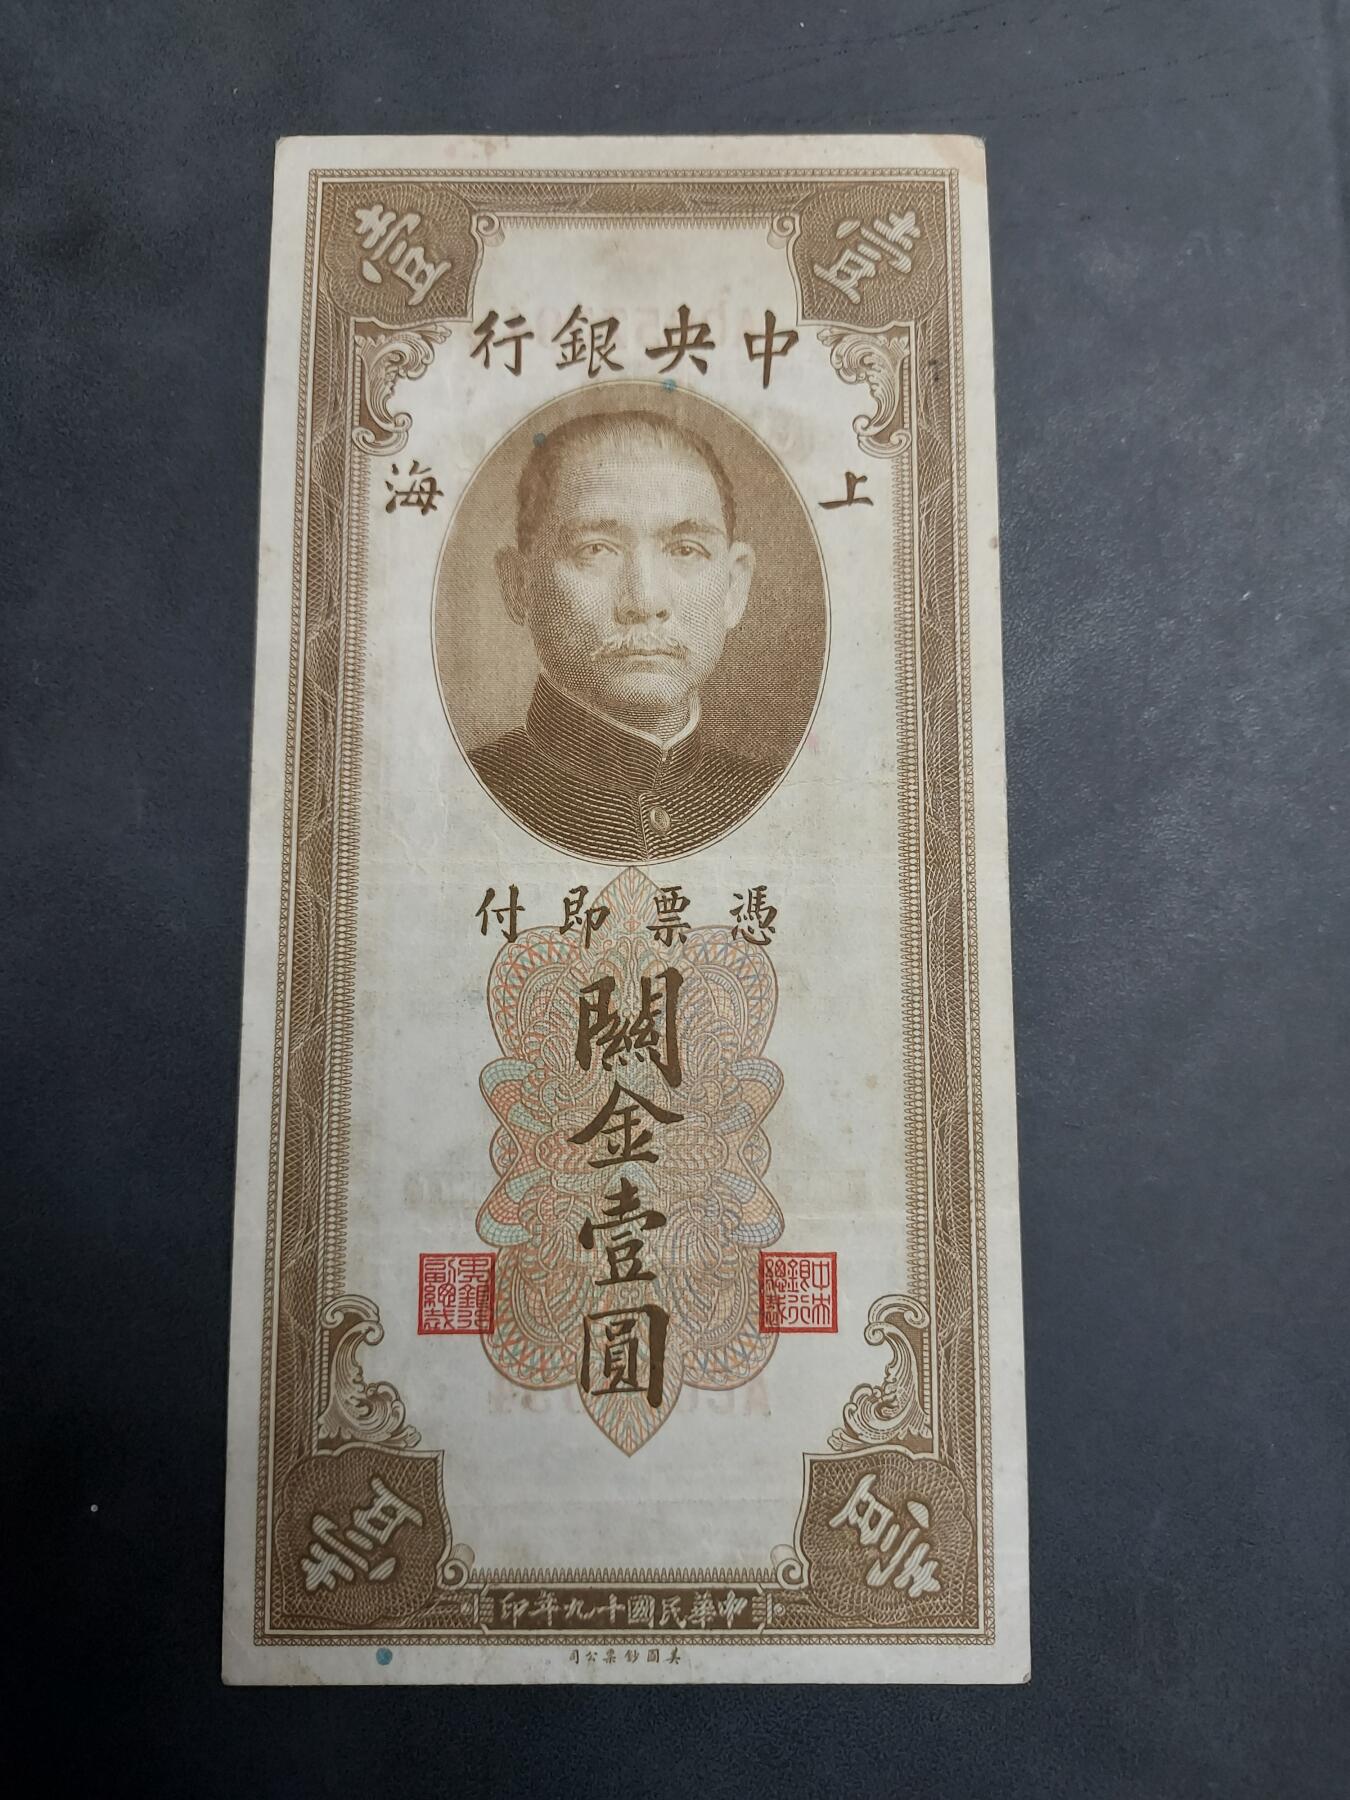 壹 壹
中央銀行
上海
憑票即付
關金壹圓
中央銀行總裁
中央銀行副總裁
壹 壹
中華民國十九年印
美國鈔票公司